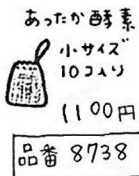 あったか酵素
小サイズ
10コ入り
1100円
品番 8738